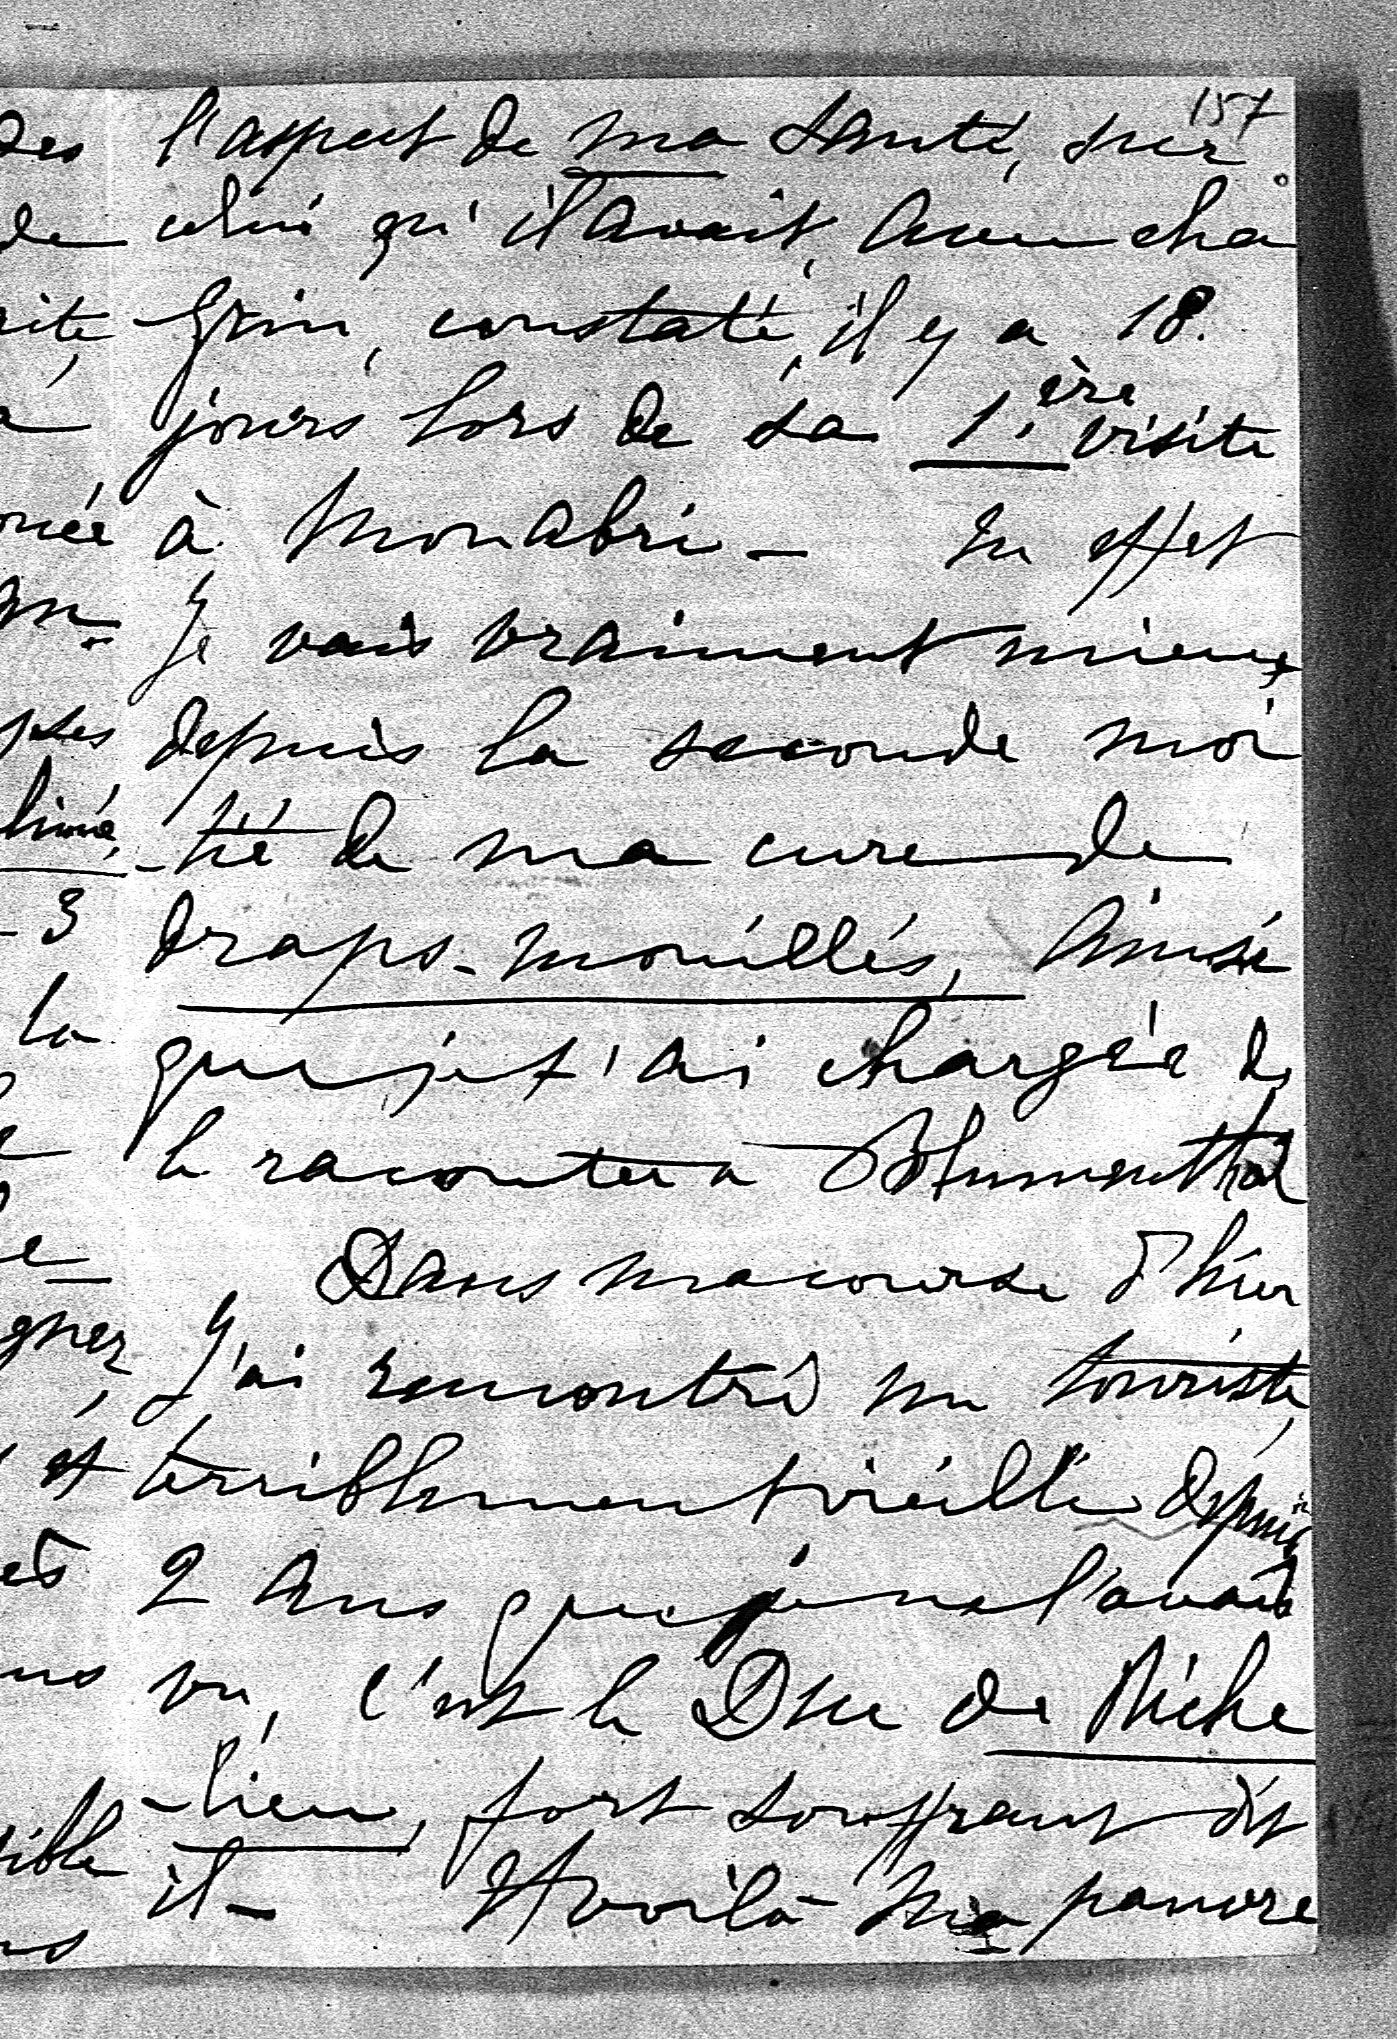 157
l'aspect de ma santé, sur
celui qu'il avait, avec cha
grin, constaté, il y a 18.
jours lors de sa 1.ère visite
à Monabri — En effet
Je vais vraiment mieux
depuis la seconde moi
-tié de ma cure de
draps-mouillés, Ainsi
que je t'ai chargée de
le raconter a Blumenthal
Dans ma course d'hier
J'ai rencontré un touriste,
terriblement vieilli depuis
2 Ans que je ne l'avais
vu, c'est le Duc de Riche
-lieu, fort souffrant dit
il — Et voilà ma pauvre
des
de
à
3
la
et